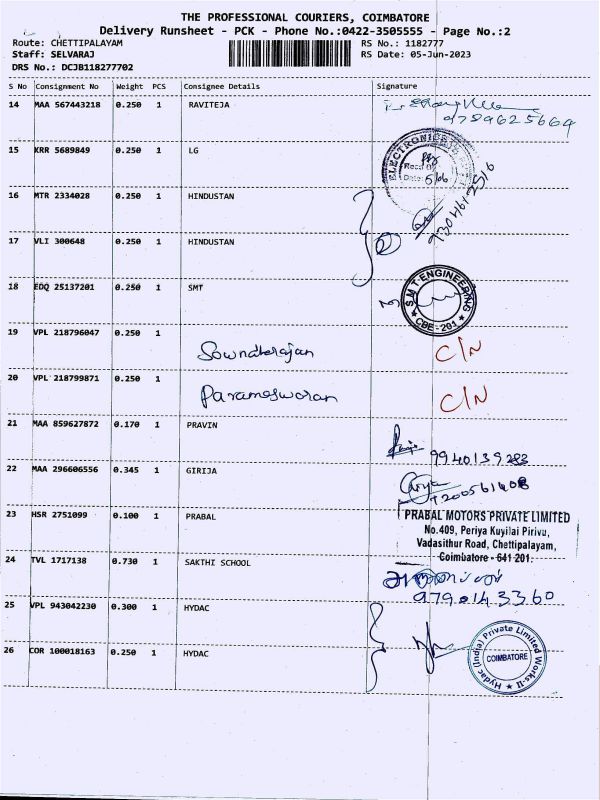 THE PROFESSIONAL COURIERS, COIMBATORE
Delivery Runsheet - PCK - Phone No.:0422-3505555 - Page No.:2
Route: CHETTIPALAYAM RS No.: 1182777
Staff: SELVARAJ RS Date: 05-Jun-2023
DRS No.: DCJB118277702
S No Consignment No Weight PCS Consignee Details Signature
14 MAA 567443218 0.250 1 RAVITEJA
9789625664
15 KRR 5689849 0.250 1 LG
ELECTRONICS
Recd By
Date: 5/06
16 MTR 2334028 0.250 1 HINDUSTAN
9304612516
17 VLI 300648 0.250 1 HINDUSTAN
18 EDQ 25137201 0.250 1 SMT
S.M.T ENGINEERING
CBE-201
19 VPL 218796047 0.250 1
Sownderajan C/N
20 VPL 218799871 0.250 1
Parameswaran C/N
21 MAA 859627872 0.170 1 PRAVIN
9940139283
22 MAA 296606556 0.345 1 GIRIJA
9200561408
23 HSR 2751099 0.100 1 PRABAL
PRABAL MOTORS PRIVATE LIMITED
No.409, Periya Kuyilai Pirivu,
Vadasithur Road, Chettipalayam,
Coimbatore - 641 201.
24 TVL 1717138 0.730 1 SAKTHI SCHOOL
9790143360
25 VPL 943042230 0.300 1 HYDAC
26 COR 100018163 0.250 1 HYDAC
Hydac (India) Private Limited Works-II
COIMBATORE